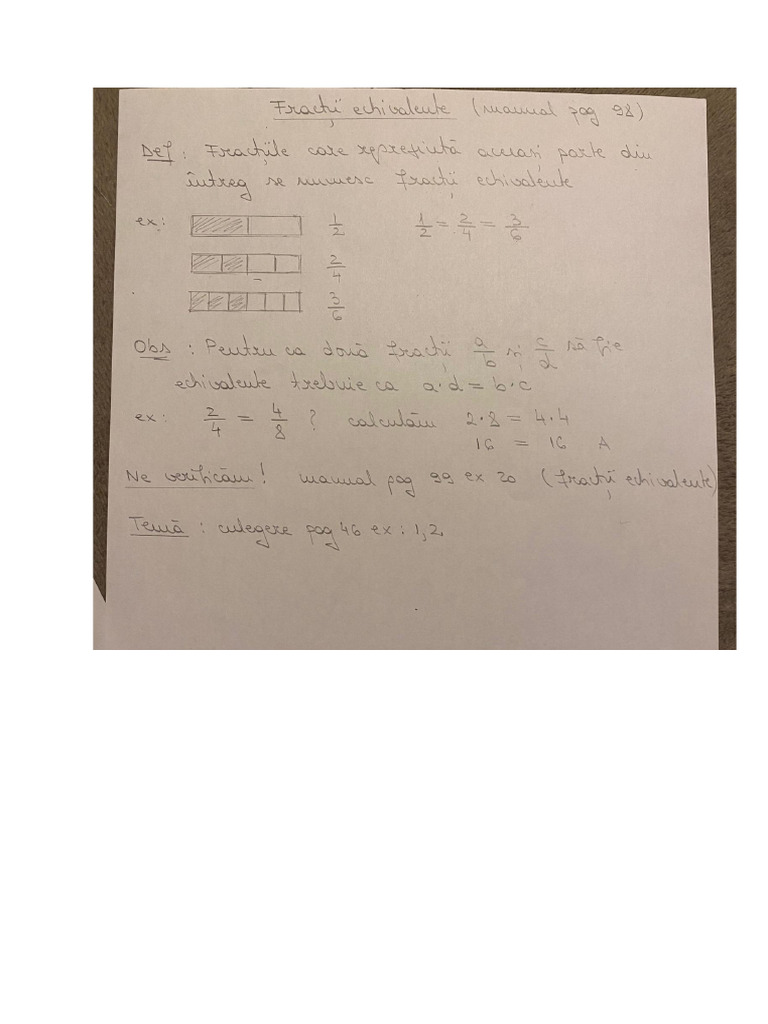 Fracții echivalente (manual pag 98)
Def: Fracțiile care reprezintă aceeași parte din
întreg se numesc fracții echivalente
ex: 1/2 1/2 = 2/4 = 3/6
2/4
3/6
Obs: Pentru ca două fracții a/b și c/d să fie
echivalente trebuie ca a·d = b·c
ex: 2/4 = 4/8 ? calculăm 2·8 = 4·4
16 = 16 A
Ne verificăm! manual pag 99 ex 20 (fracții echivalente)
Temă: culegere pag 46 ex: 1,2.